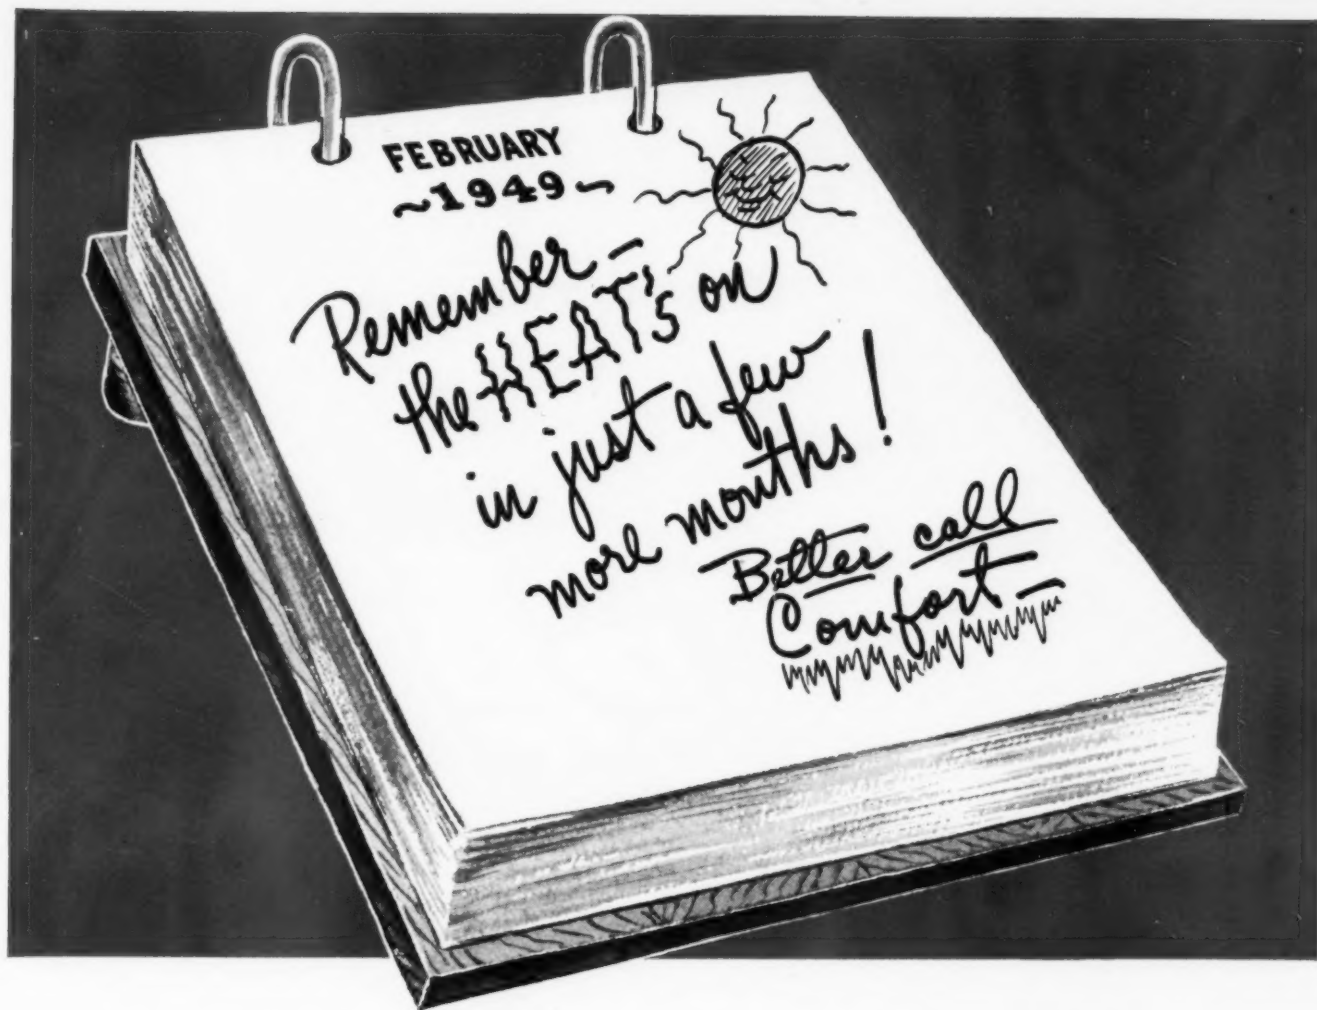 FEBRUARY
~1949~
Remember –
the HEAT's on
in just a few
more months!
Better call
Comfort –